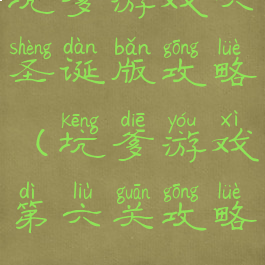 坑爹游戏大
shèng dàn bǎn gōng lüè
圣诞版攻略
kēng diē yóu xì
（坑爹游戏
dì liù guān gōng lüè
第六关攻略